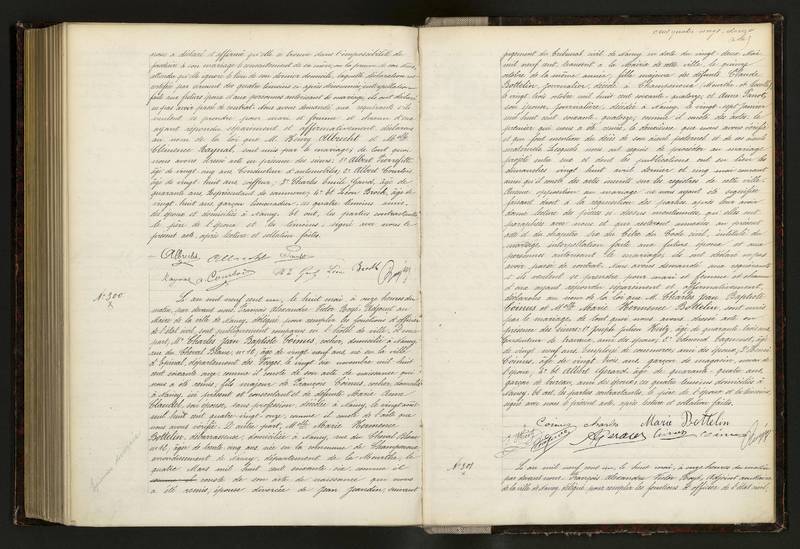 nous a déclaré et affirmé qu'elle se trouve dans l'impossibilité de
produire à son mariage le consentement de sa mère, ou la preuve de son décès,
attendu qu'elle ignore le lieu de son dernier domicile, laquelle déclaration est
certifiée par serment des quatre témoins ci-après dénommés; interpellation
faite aux futurs époux et aux personnes autorisant le mariage, ils ont déclaré
ne pas avoir passé de contrat. Nous avons demandé aux requérants s'ils
veulent se prendre pour mari et femme et chacun d'eux
ayant répondu séparément et affirmativement déclarons
au nom de la loi que M. Albrecht et Mlle
Clémence Raynal, sont unis par le mariage; de tout quoi
nous avons dressé acte en présence des sieurs: 1° Albert Pierrefitte
âgé de vingt cinq ans Conducteur d'automobiles; 2° Albert Courtois
âgé de vingt huit ans coiffeur; 3° Charles Emile Gand, âgé de
quarante ans Représentant de commerce; 4° et Léon Broch, âgé de
vingt huit ans garçon limonadier, ces quatre témoins amis
des époux et domiciliés à Nancy. Et ont, les parties contractantes
le père de l'époux et les témoins, signé avec nous le
présent acte, après lecture et collation faites.
Albrecht Albrecht
Léon Broch
N° 300
L'an mil neuf cent un, le huit mai à onze heures du
matin, par devant nous, François Alexandre Victor Boyé, Adjoint au
Maire de la ville de Nancy, délégué pour remplir les fonctions d'officier
de l'état civil, sont publiquement comparus en l'hôtel de ville, d'une
part, Mr Charles Jean Baptiste Coinus, cocher, domicilié à Nancy
rue du Cheval Blanc, n° 16, âgé de vingt neuf ans, né en la ville
d'Epinal, département des Vosges, le vingt six novembre mil huit
cent soixante onze comme il conste de son acte de naissance qui
nous a été remis, fils majeur de François Coinus, cocher, domicilié
à Nancy, ici présent et consentant et de défunte Marie Anne
Claudel, son épouse, sans profession, décédée à Nancy, le
mil huit cent quatre vingt onze, comme il conste de l'acte que
nous avons vérifié. D'autre part, Mlle Marie Hermence
Bottelin, débarrasseuse, domiciliée à Nancy, rue du Cheval Blanc
n° 16, âgée de trente cinq ans, née en la commune de Champenoux
arrondissement de Nancy, département de la Meurthe, le
quatre Mars mil huit cent soixante six comme il
conste de son acte de naissance qui nous
a été remis, épouse divorcée de Jean Jeandin, suivant
cent quatre vingt douze
jugement du tribunal civil de Nancy en date du vingt deux Mai
mil neuf cent, transcrit à la Mairie de cette ville, le quinze
octobre de la même année, fille majeure des défunts Claude
Bottelin, journalier, décédé à Champenoux (Meurthe et Moselle)
le vingt trois octobre mil huit cent soixante quatorze et
son épouse, journalière, décédée à Nancy, le vingt sept Janvier
mil huit cent soixante quatorze, comme il conste des actes: le
premier qui nous a été remis, le deuxième que nous avons vérifié
et qui font mention des décès de son aïeul paternel et de ses aïeuls
maternels. Lesquels nous ont requis de procéder au mariage
projeté entre eux et dont les publications ont eu lieu les
dimanches vingt huit avril dernier et cinq mai courant
ainsi qu'il conste des actes inscrits sur les registres de cette ville.
Aucune opposition au mariage ne nous ayant été signifiée
faisant droit à la réquisition des parties, après leur avoir
donné lecture des pièces ci-dessus mentionnées, qui elles ont
paraphées avec nous et qui resteront annexées au présent
acte et du chapitre six du titre du Code civil, intitulé du
mariage, interpellation faite aux futurs époux et aux
personnes autorisant le mariage, ils ont déclaré ne pas
avoir passé de contrat. Nous avons demandé aux requérants
s'ils veulent se prendre pour mari et femme et chacun
d'eux ayant répondu séparément et affirmativement,
déclarons au nom de la loi que M. Charles Jean Baptiste
Coinus et Mlle Marie Hermence Bottelin, sont unis
par le mariage, de tout quoi nous avons dressé acte en
présence des sieurs: 1° Joseph Julien Kuty, âgé de quarante trois ans
Conducteur de travaux, ami des époux; 2° Edmond Bagnard, âgé
de vingt neuf ans, employé de commerce, ami des époux; 3° Henri
Coinus, âgé de vingt trois ans, garçon de magasin, frère de
l'époux, 4° et Albert Gérard âgé de quarante quatre ans,
garçon de bureau, ami des époux; ces quatre témoins domiciliés à
Nancy. Et ont, les parties contractantes, le père de l'époux et les témoins,
signé avec nous le présent acte, après lecture et collation faites.
Coinus charles Marie Bottelin
Gerard Coinus Coinus
N° 301
L'an mil neuf cent un, le huit mai, à onze heures du matin
par devant nous, François Alexandre Victor Boyé, Adjoint au Maire
de la ville de Nancy, délégué pour remplir les fonctions d'officier de l'état civil,